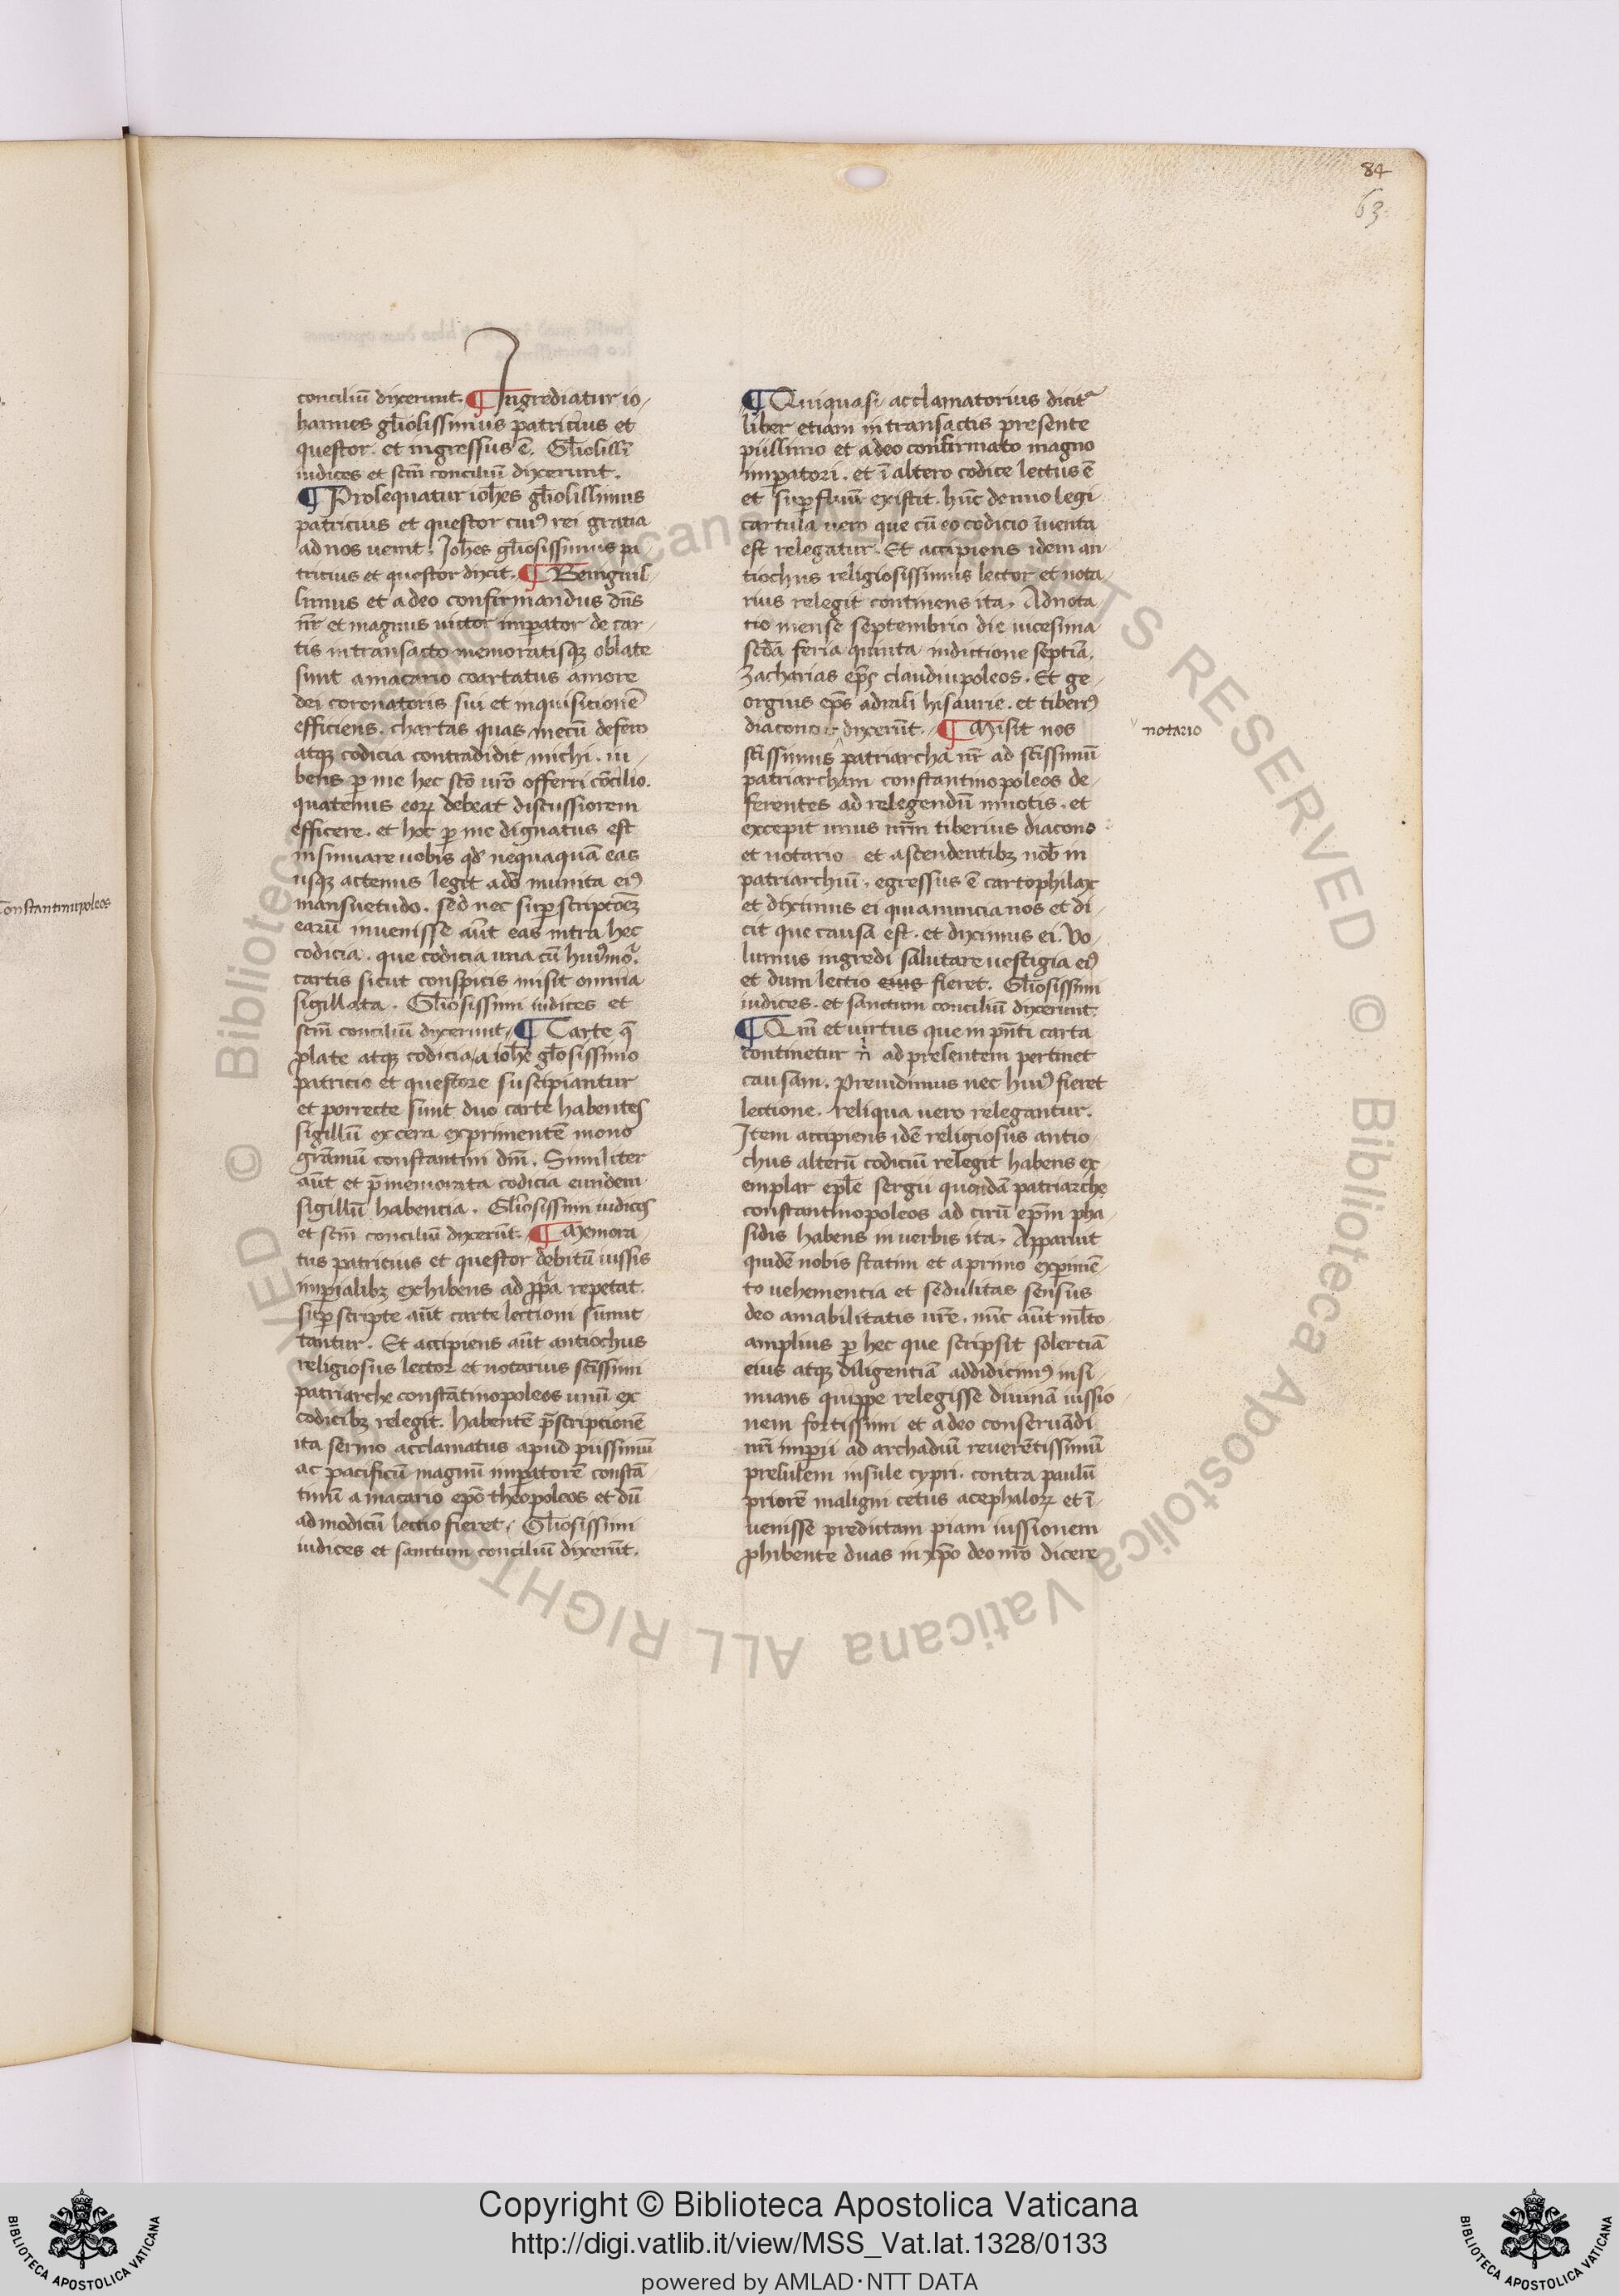 84
63
conciliū dixerunt. ¶ Ingrediatur io,
hannes gl̄iosissimus patricius et
questor. et ingressus ē. Gl̄iosissī
iudices et scm̄ conciliū dixerunt.
¶ Prosequatur ioh̄es gl̄iosissimus
patricius et questor cuiꝰ rei gratia
ad nos uenit. Joh̄es gl̄iosissimus pa,
tricius et questor dixit. ¶ Benignis,
simus et a deo confirmandus dn̄s
nr̄ et magnus uictor imꝑator de car,
tis in transacto memoratisqꝫ oblate
sunt a macario coartatus amore
dei coronatoris sui et inquisicionē
efficiens. chartas quas mecū defero
atqꝫ codicia contradidit michi. iu,
bens ꝑ me hec scō ur̄o offerri cōcilio.
quatenus eoꝝ debeat discussionem
efficere. et hoc ꝑ me dignatus est
insinuare uobis qd̄ nequaquā eas
usqꝫ actenus legit a dō munita eiꝰ
mansuetudo. sed nec suꝑscriptōēꝫ
earū inuenisse aūt eas intra hec
codicia. que codicia una cū huiꝰmōi
cartis sicut conspicis misit omnia
sigillata. Gl̄iosissimi iudices et
scm̄ conciliū dixerunt. ¶ Carte q̄
ꝓlate atqꝫ codicia a ioh̄e gl̄osissimo
patricio et questore suscipiantur
et porrecte sunt duo carte habentes
sigillū ex cera exprimentē mono
grāmū constantini dn̄i. Similiter
aūt et p̄memorata codicia eundem
sigillū habencia. Gl̄iosissimi iudices
et scm̄ conciliū dixerūt. ¶ Memora,
tus patricius et questor debitū iussis
imꝑialibꝫ exhibens ad ꝓpͥa repetat.
suꝑscripte aūt carte lectioni sūmit
tantur. Et accipiens aūt antiochus
religiosus lector et notarius scīssimi
patriarche constātinopoleos unū ex
codicibꝫ relegit. habentē p̄scriptionē
ita sermo acclamatus apud piissimū
ac pacificū magnū imꝑatorē constā,
tinū a macario ep̄o theopoleos et dū
ad modicū lectio fieret. Gl̄iosissimi
iudices et sanctum conciliū dixerūt.
¶ Qui quasi acclamatorius dicitᷣ
liber etiam in transactis presente
piissimo et a deo confirmato magno
imꝑatori. et ī altero codice lectus ē
et suꝑfluū existit. hūc denuo legi
cartula uero que cū eo codicio īuenta
est relegatur. Et accipiens idem an
tiochus religiosissimus lector et nota,
rius relegit continens ita. Adnota
tio mense septembrio die uicesima
scd̄a feria quinta indictione septīa.
Zacharias ep̄s claudiupoleos. Et ge,
orgius ep̄s adrasi hisaurie. et tiberiꝰ
diacono dixerūt. ¶ Misit nos
notario
scīssimus patriarcha nr̄ ad scīssimū
patriarcham constantinopoleos de,
ferentes ad relegendū inuotis. et
excepit unus nr̄m tiberius diacono
et notario et ascendentibꝫ nob̄ in
patriarchiū. egressus ē cartophilax
et diximus ei quia nuncia nos et di,
cit que causa est. et diximus ei. Vo,
lumus ingredi salutare uestigia eiꝰ
et dum lectio eius fieret. Gl̄iosissimi
iudices. et sanctum conciliū dixerunt.
¶ Qm̄ et uirtus que in pn̄ti carta
continetur n̄ ad presentem pertinet
causam. Preuidimus nec huiꝰ fieret
lectione. reliqua uero relegantur.
Item accipiens idē religiosus antio
chus alterū codiciū relegit habens ex,
emplar epl̄e sergii quondā patriarche
constantinopoleos ad cirū ep̄m pha,
sidis habens in uerbis ita. Apparuit
quidē nobis statim et a primo exꝑimē,
to uehementia et sedulitas sensus
deo amabilitatis ur̄e. nūc aūt ml̄to
amplius ꝑ hec que scripsit solertiā
eius atqꝫ diligentiā addidicimꝰ insi,
nuans quippe relegisse diuinā iussio,
nem fortissimi et a deo conseruādi
nr̄i imꝑii ad archadiū reuerētissimū
presulem insule cypri. contra paulū
priorē maligni cetus acephaloꝝ et ī,
uenisse predictam piam iussionem
ꝓhibente duas in xp̄o deo nr̄o dicere
onstantinupoleos
© Biblioteca Apostolica Vaticana ALL RIGHTS RESERVED © Biblioteca Apostolica Vaticana ALL RIGHTS RESERVED
Copyright © Biblioteca Apostolica Vaticana
http://digi.vatlib.it/view/MSS_Vat.lat.1328/0133
powered by AMLAD·NTT DATA
BIBLIOTECA APOSTOLICA VATICANA
BIBLIOTECA APOSTOLICA VATICANA